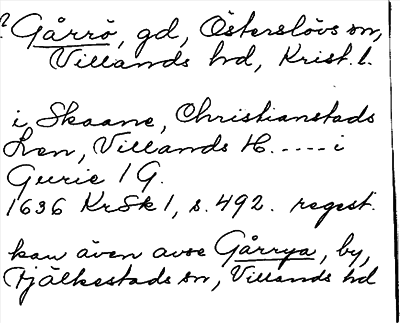 ? Gårrö, gd, Österslövs sn,
Villands hd, Krist. l.
i Skaane, Christianstads
Len, Villands H. ----- i
Gurie 1 G.
1636 KrSk 1, s. 492. regest.
kan även avse Gårrya, by,
Fjälkestads sn, Villands hd